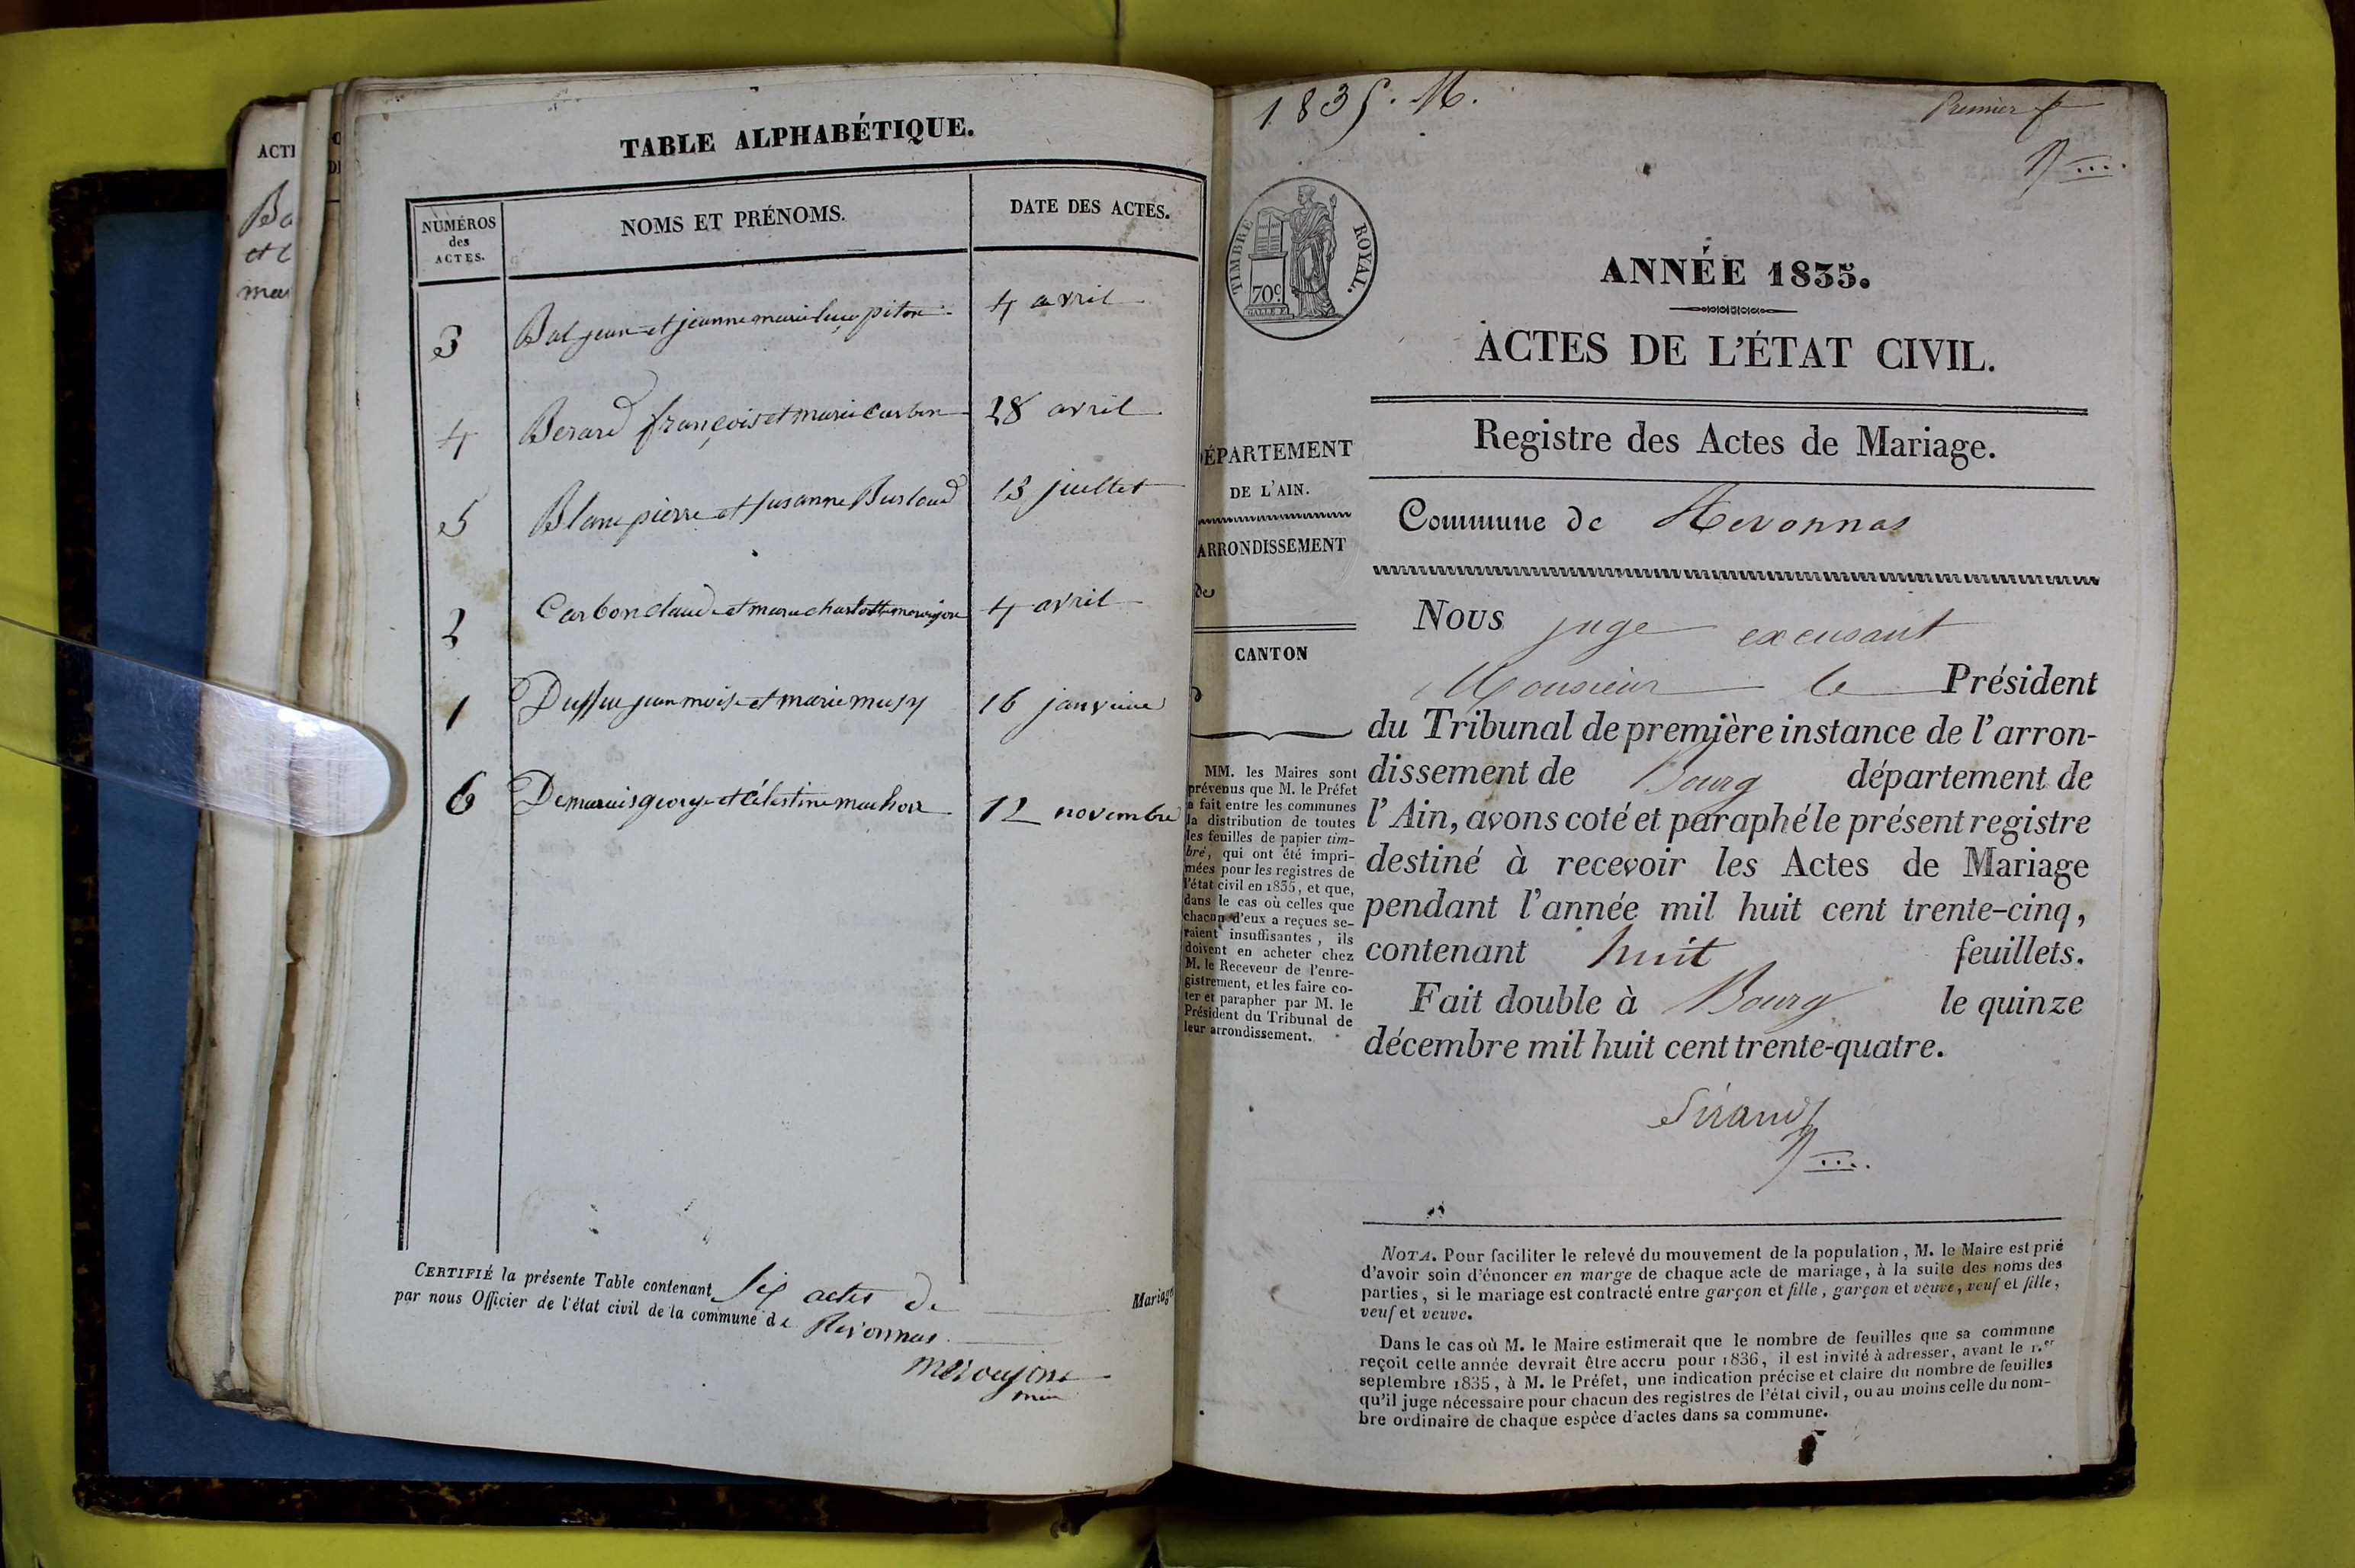 ACTE
Ba
et C
mar
TABLE ALPHABÉTIQUE.
NUMÉROS
des
ACTES.
NOMS ET PRÉNOMS.
DATE DES ACTES.
3 Bal jean et jeanne marie luce piton 4 avril
4 Berard françois et marie Carbon 28 avril
5 Blanc pierre et susanne Burtaud 13 juillet
2 Carbon claude et marie charlotte 4 avril
1 jean moise et marie musy 16 janvier
6 Demarais george et Célestine 12 novembre
CERTIFIÉ la présente Table contenant six actes de Mariage
par nous Officier de l'état civil de la commune de Revonnas
1835. M.
Premier f
TIMBRE ROYAL.
70c
ANNÉE 1835.
ACTES DE L'ÉTAT CIVIL.
Registre des Actes de Mariage.
Commune de Revonnas
DÉPARTEMENT
DE L'AIN.
ARRONDISSEMENT
de
CANTON
d
MM. les Maires sont
prévenus que M. le Préfet
a fait entre les communes
la distribution de toutes
les feuilles de papier tim-
bré, qui ont été impri-
mées pour les registres de
l'état civil en 1835, et que,
dans le cas où celles que
chacun d'eux a reçues se-
raient insuffisantes, ils
doivent en acheter chez
M. le Receveur de l'enre-
gistrement, et les faire co-
ter et parapher par M. le
Président du Tribunal de
leur arrondissement.
Nous juge excusant
Monsieur le Président
du Tribunal de première instance de l'arron-
dissement de Bourg département de
l'Ain, avons coté et paraphé le présent registre
destiné à recevoir les Actes de Mariage
pendant l'année mil huit cent trente-cinq,
contenant huit feuillets.
Fait double à Bourg le quinze
décembre mil huit cent trente-quatre.
Sirand
NOTA. Pour faciliter le relevé du mouvement de la population, M. le Maire est prié
d'avoir soin d'énoncer en marge de chaque acte de mariage, à la suite des noms des
parties, si le mariage est contracté entre garçon et fille, garçon et veuve, veuf et fille,
veuf et veuve.
Dans le cas où M. le Maire estimerait que le nombre de feuilles que sa commune
reçoit cette année devrait être accru pour 1836, il est invité à adresser, avant le 1.er
septembre 1835, à M. le Préfet, une indication précise et claire du nombre de feuilles
qu'il juge nécessaire pour chacun des registres de l'état civil, ou au moins celle du nom-
bre ordinaire de chaque espèce d'actes dans sa commune.